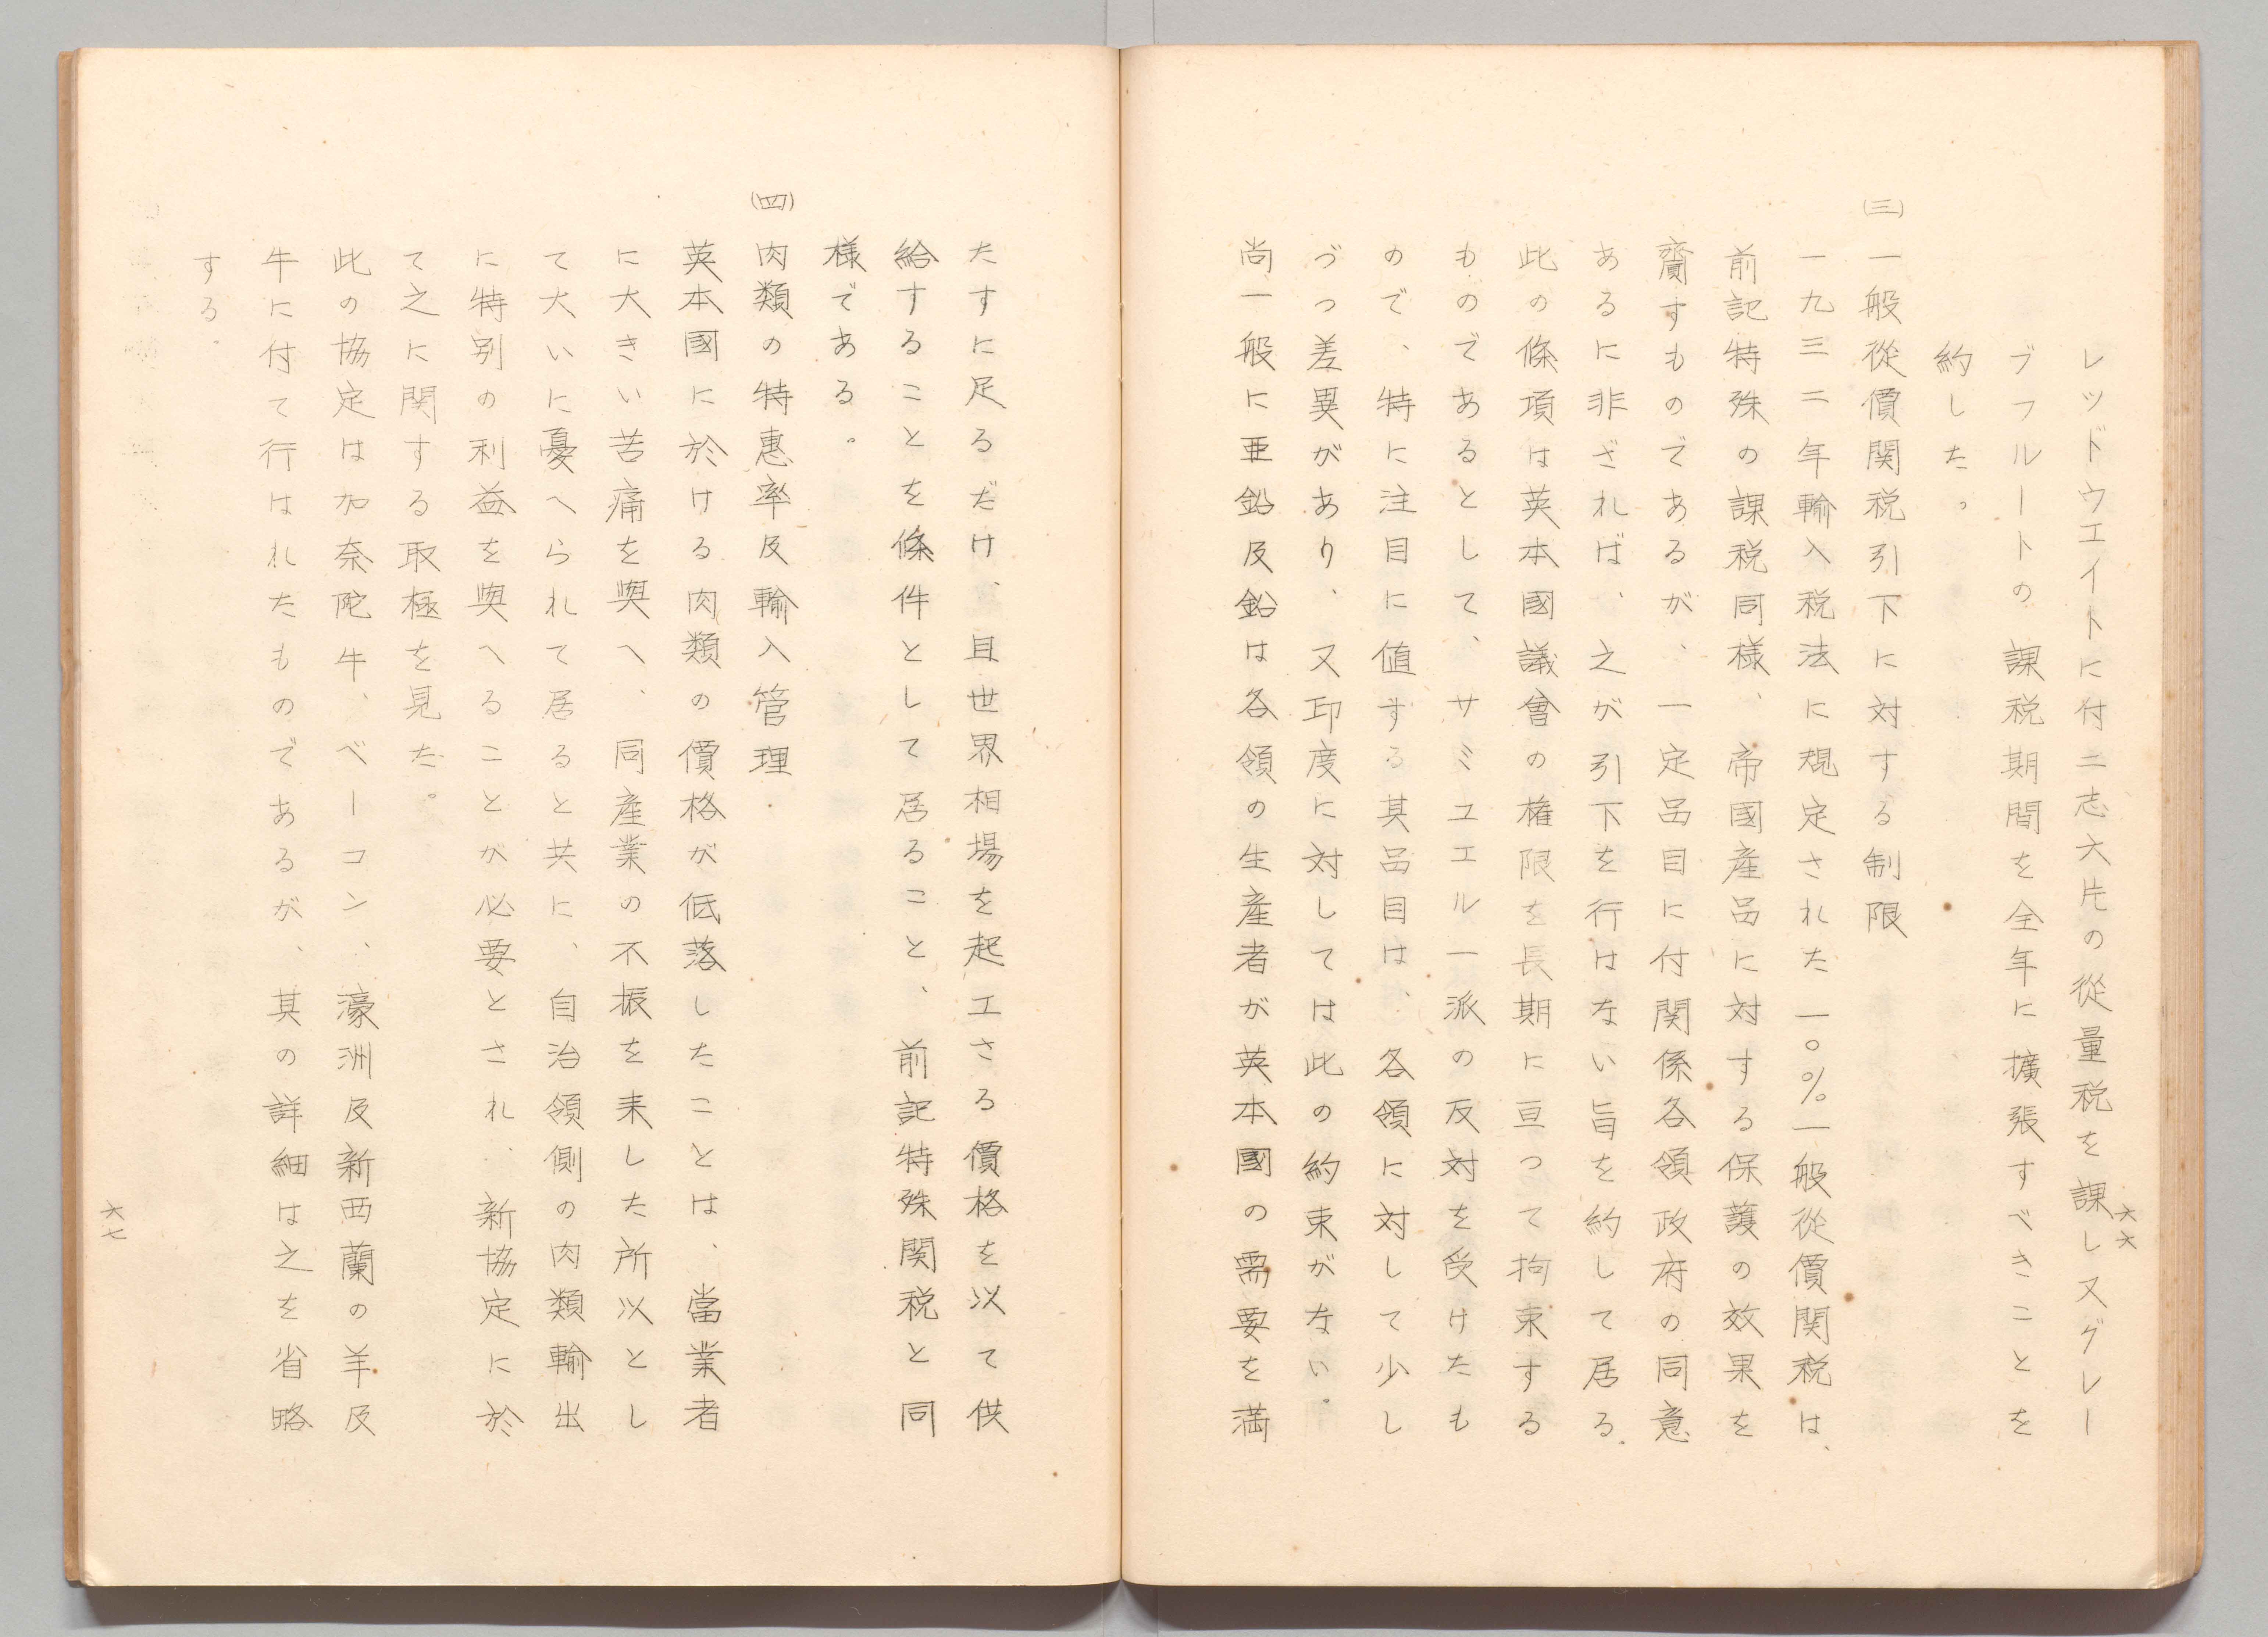 レッドウエイトに付二志六片の從量税を課し又グレー
プフルートの課税期間を全年に擴張すべきことを
約した。
(三) 一般從價関税引下に対する制限
一九三二年輸入税法に規定された一〇%一般從價関税は、
前記特殊の課税同様、帝國産品に対する保護の效果を
齎すものであるが、一定品目に付関係各領政府の同意
あるに非ざれば、之が引下を行はない旨を約して居る。
此の條項は英本國議會の権限を長期に亘つて拘束する
ものであるとして、サミユエル一派の反対を受けたも
ので、特に注目に値する其品目は、各領に対して少し
づつ差異があり、又印度に対しては此の約束がない。
尚一般に亜鉛及鉛は各領の生産者が英本國の需要を満
六六
たすに足るだけ、且世界相場を起工さる價格を以て供
給することを條件として居ること、前記特殊関税と同
様である。
(四) 肉類の特惠率及輸入管理.
英本國に於ける肉類の價格が低落したことは、當業者
に大きい苦痛を與へ、同産業の不振を来した所以とし
て大いに憂へられて居ると共に、自治領側の肉類輸出
に特別の利益を與へることが必要とされ、新協定に於
て之に関する取極を見た。
此の協定は加奈陀牛、ベーコン、濠洲及新西蘭の羊及
牛に付て行はれたものであるが、其の詳細は之を省略
する.
六七